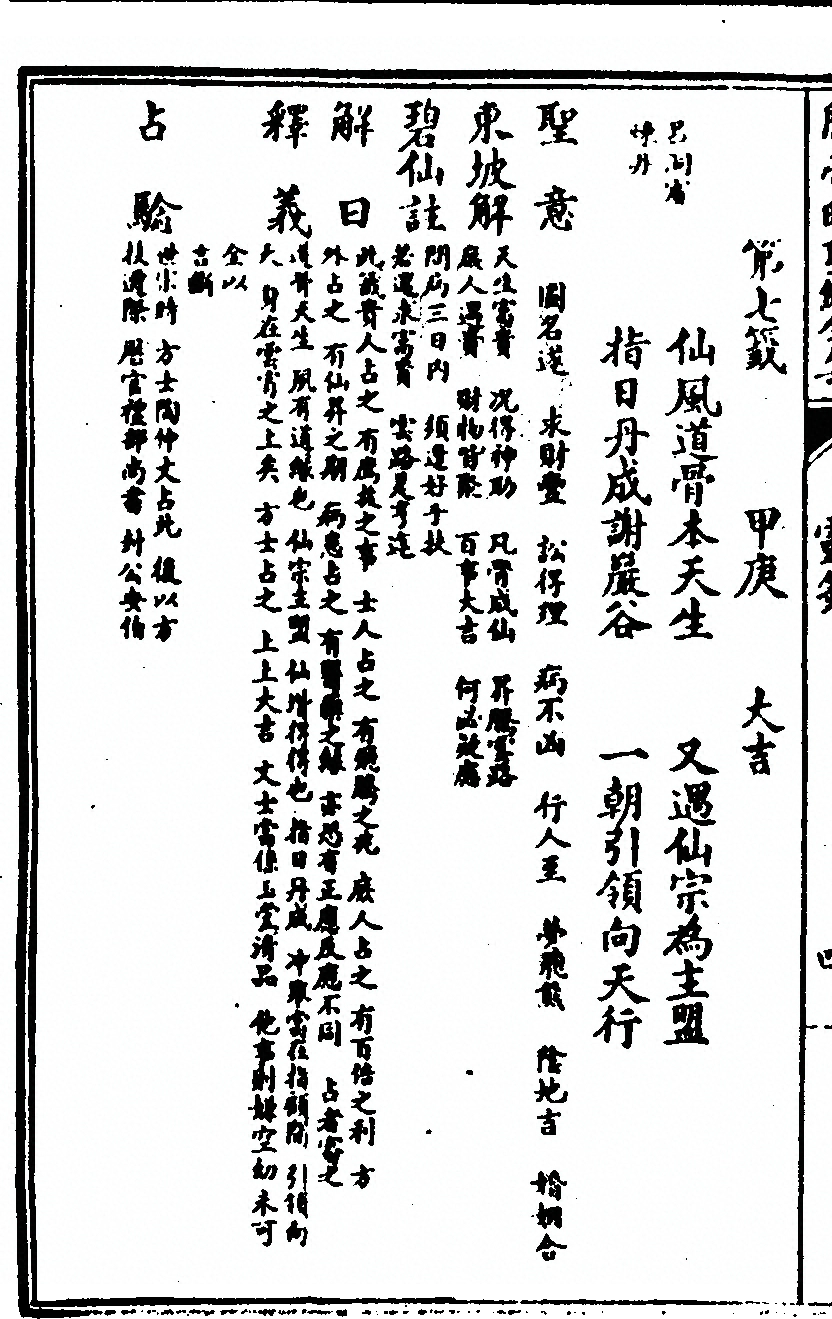 第七籤 甲庚 大吉
呂洞賓
煉丹
仙風道骨本天生 又遇仙宗為主盟
指日丹成謝巖谷 一朝引領向天行
聖意 圖名遂 求財豐 訟得理 病不凶 行人至 夢飛熊 陰地吉 婚姻合
東坡解 天生富貴 况得神助 凡骨成仙 昇騰雲路
庶人遇貴 財物皆聚 百事大吉 何必疑慮
碧仙註 問病三日內 須逢好手扶
若還求富貴 雲路是亨途
解曰 此籤貴人占之 有薦拔之事 士人占之 有飛騰之兆 庶人占之 有百倍之利 方
外占之 有仙昇之期 病患占之 有醫藥之緣 亦恐有正應反應不同 占者審之
釋義 道骨天生 夙有道緣也 仙宗主盟 仙階得得也 指日丹成 冲舉當在指顧間 引領向
天 身在雲霄之上矣 方士占之 上上大吉 文士當係玉堂清品 他事則嫌空幻 未可
全以
吉斷
占驗 世宗時 方士陶仲文占此 後以方
技遭際 歷官禮部尚書 封公安伯